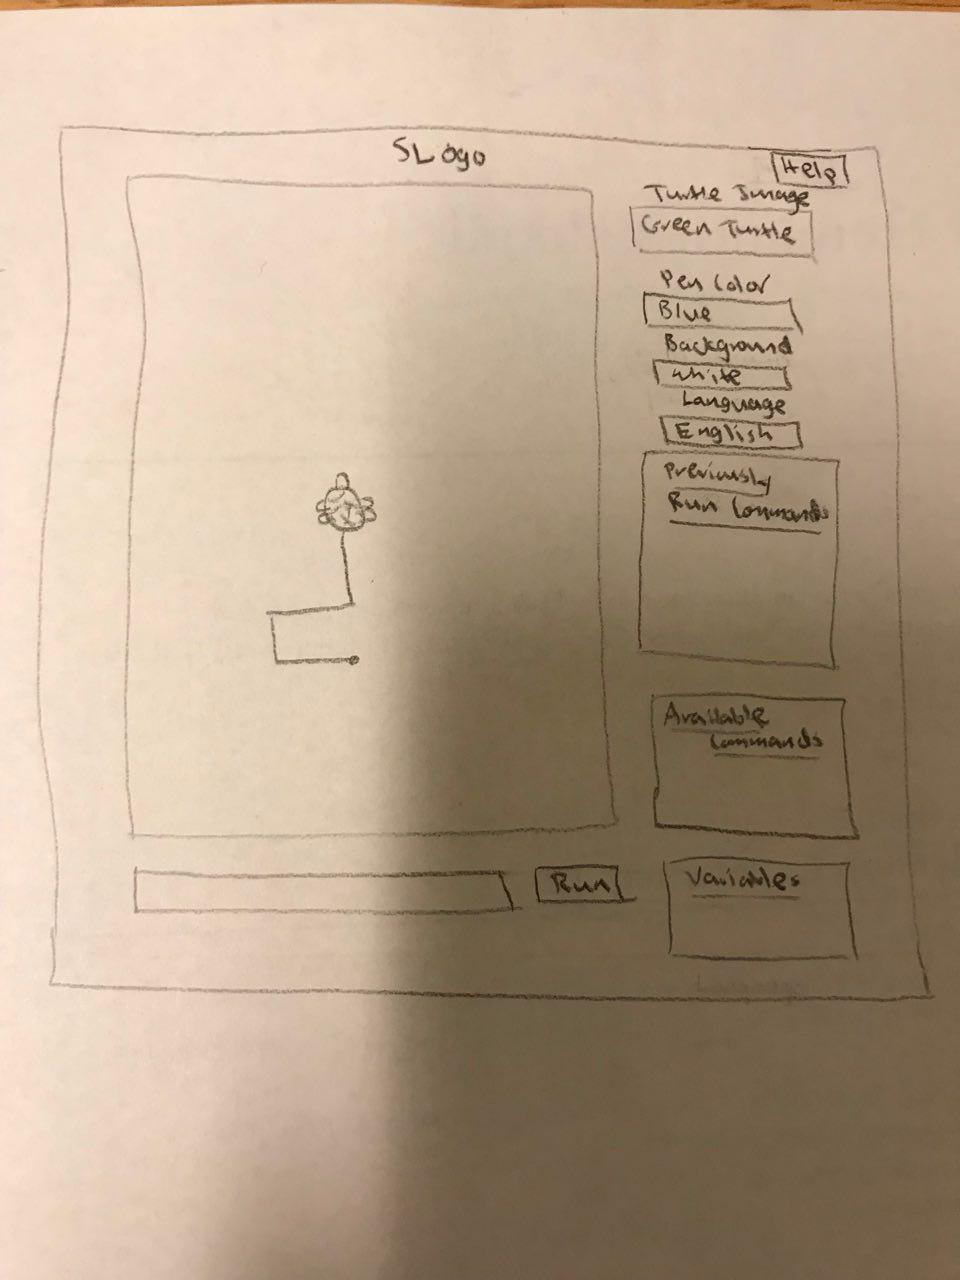 SLogo
Help
Turtle Image
Green Turtle
Pen Color
Blue
Background
White
Language
English
Previously
Run Commands
Available
Commands
Run
Variables